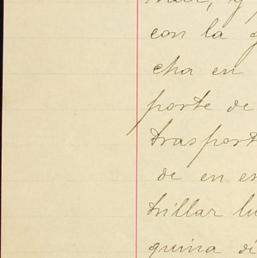 con la
cha en
porte de
trasport
de en es
trillar lu
quina di